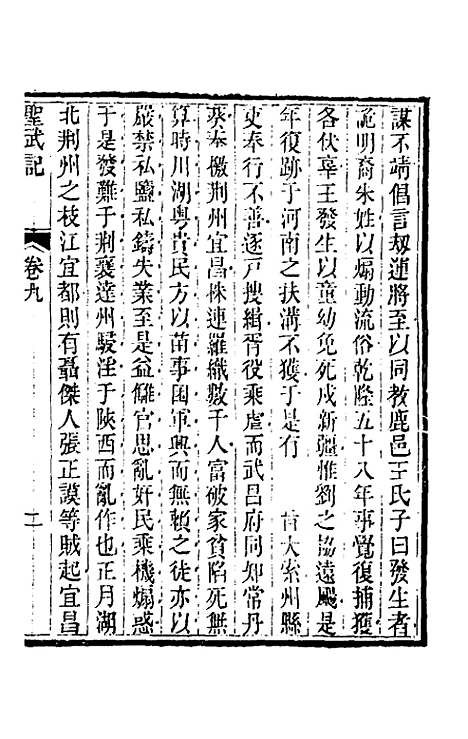 謀不靖倡言刼運將至以同教鹿邑王氏子曰發生者
詭明裔朱姓以煽動流俗乾隆五十八年事覺復捕獲
各伏辜王發生以童幼免死戍新疆惟劉之協遠颺是
年復跡于河南之扶溝不獲于是有 旨大索州縣
吏奉行不善逐戸搜緝胥役乘虐而武昌府同知常丹
葵奉檄荆州宜昌株連羅織數千人富破家貧陷死無
算時川湖粵貴民方以苗事困軍興而無賴之徒亦以
嚴禁私鹽私鑄失業至是益讎官思亂奸民乘機煽惑
于是發難于荆襄達州駸淫于陜西而亂作也正月湖
北荆州之枝江宜都則有聶傑人張正謨等賊起宜昌
聖武記
卷九
二